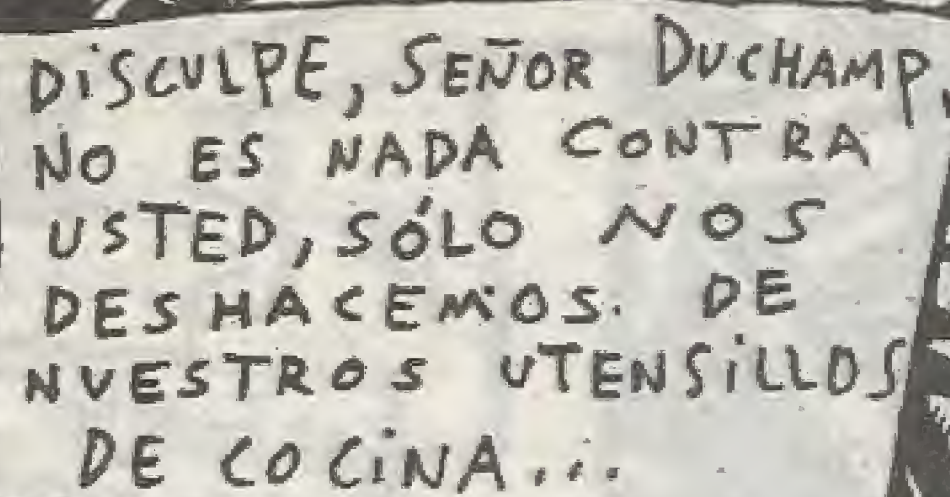 DISCULPE, SEÑOR DUCHAMP
NO ES NADA CONTRA
USTED, SÓLO NOS
DESHACEMOS. DE
NUESTROS UTENSILLOS
DE COCINA...